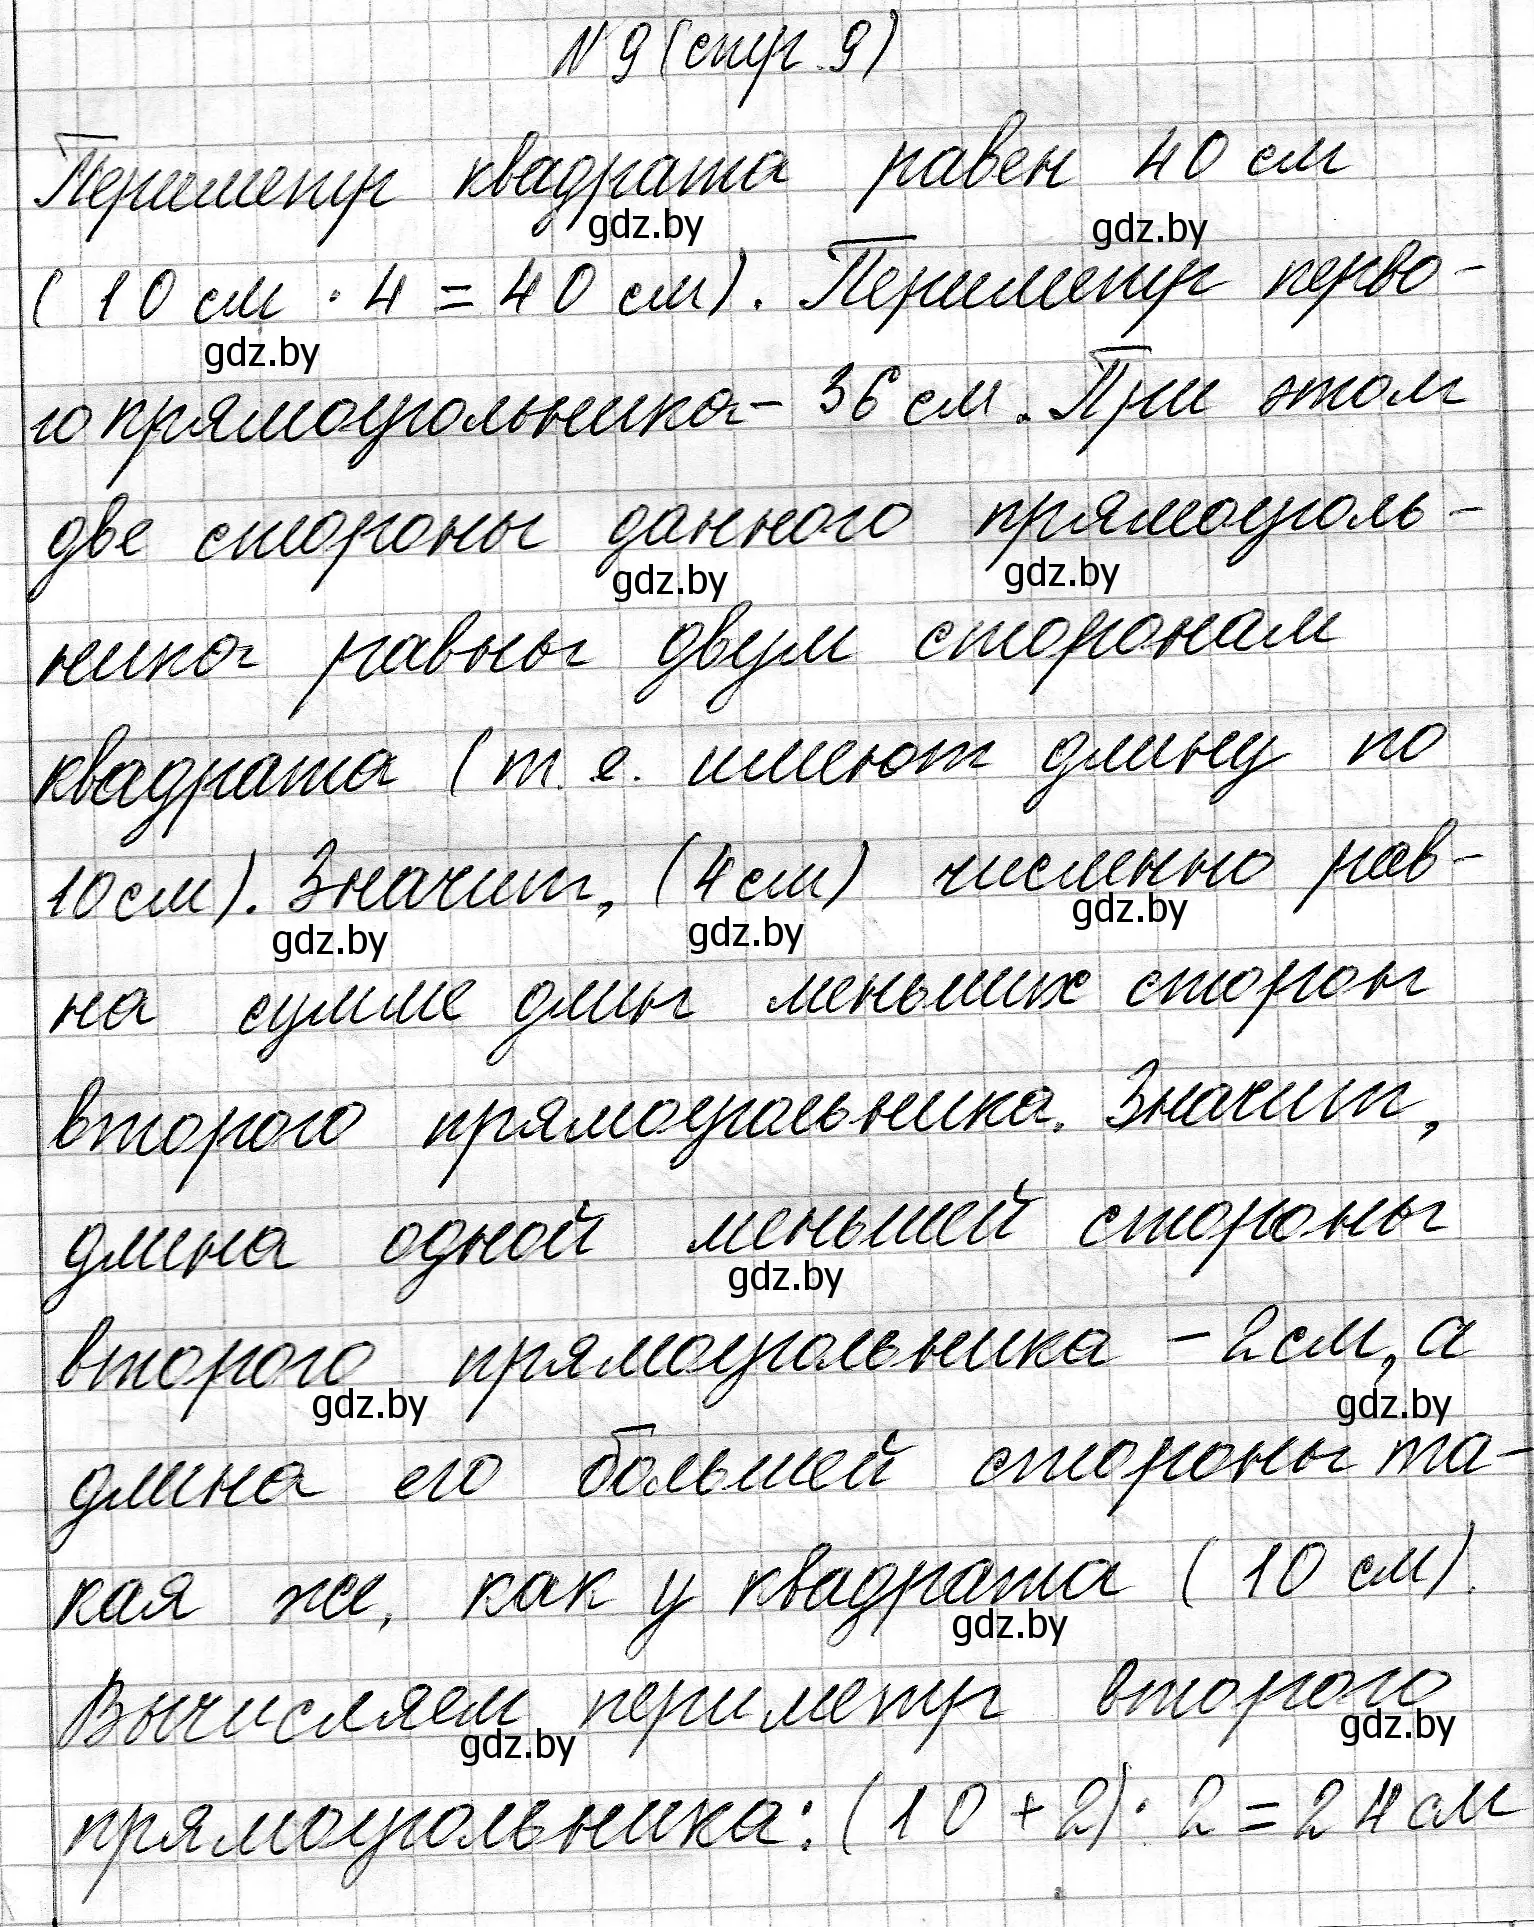 № 9 (стр. 9)
Периметр квадрата равен 40 см
gdz.by gdz.by
(10 см · 4 = 40 см). Периметр перво-
gdz.by
го прямоугольника - 36 см. При этом
две стороны данного прямоуголь-
gdz.by gdz.by
ника равны двум сторонам
квадрата (т. е. имеют длину по
10 см). Значит, (4 см) численно рав-
gdz.by gdz.by gdz.by
на сумме длин меньших сторон
второго прямоугольника. Значит,
длина одной меньшей стороны
gdz.by
второго прямоугольника - 2 см, а
gdz.by gdz.by
длина его большей стороны та-
кая же, как у квадрата (10 см).
gdz.by
Вычисляем периметр второго
gdz.by gdz.by
прямоугольника: (10 + 2) · 2 = 24 см